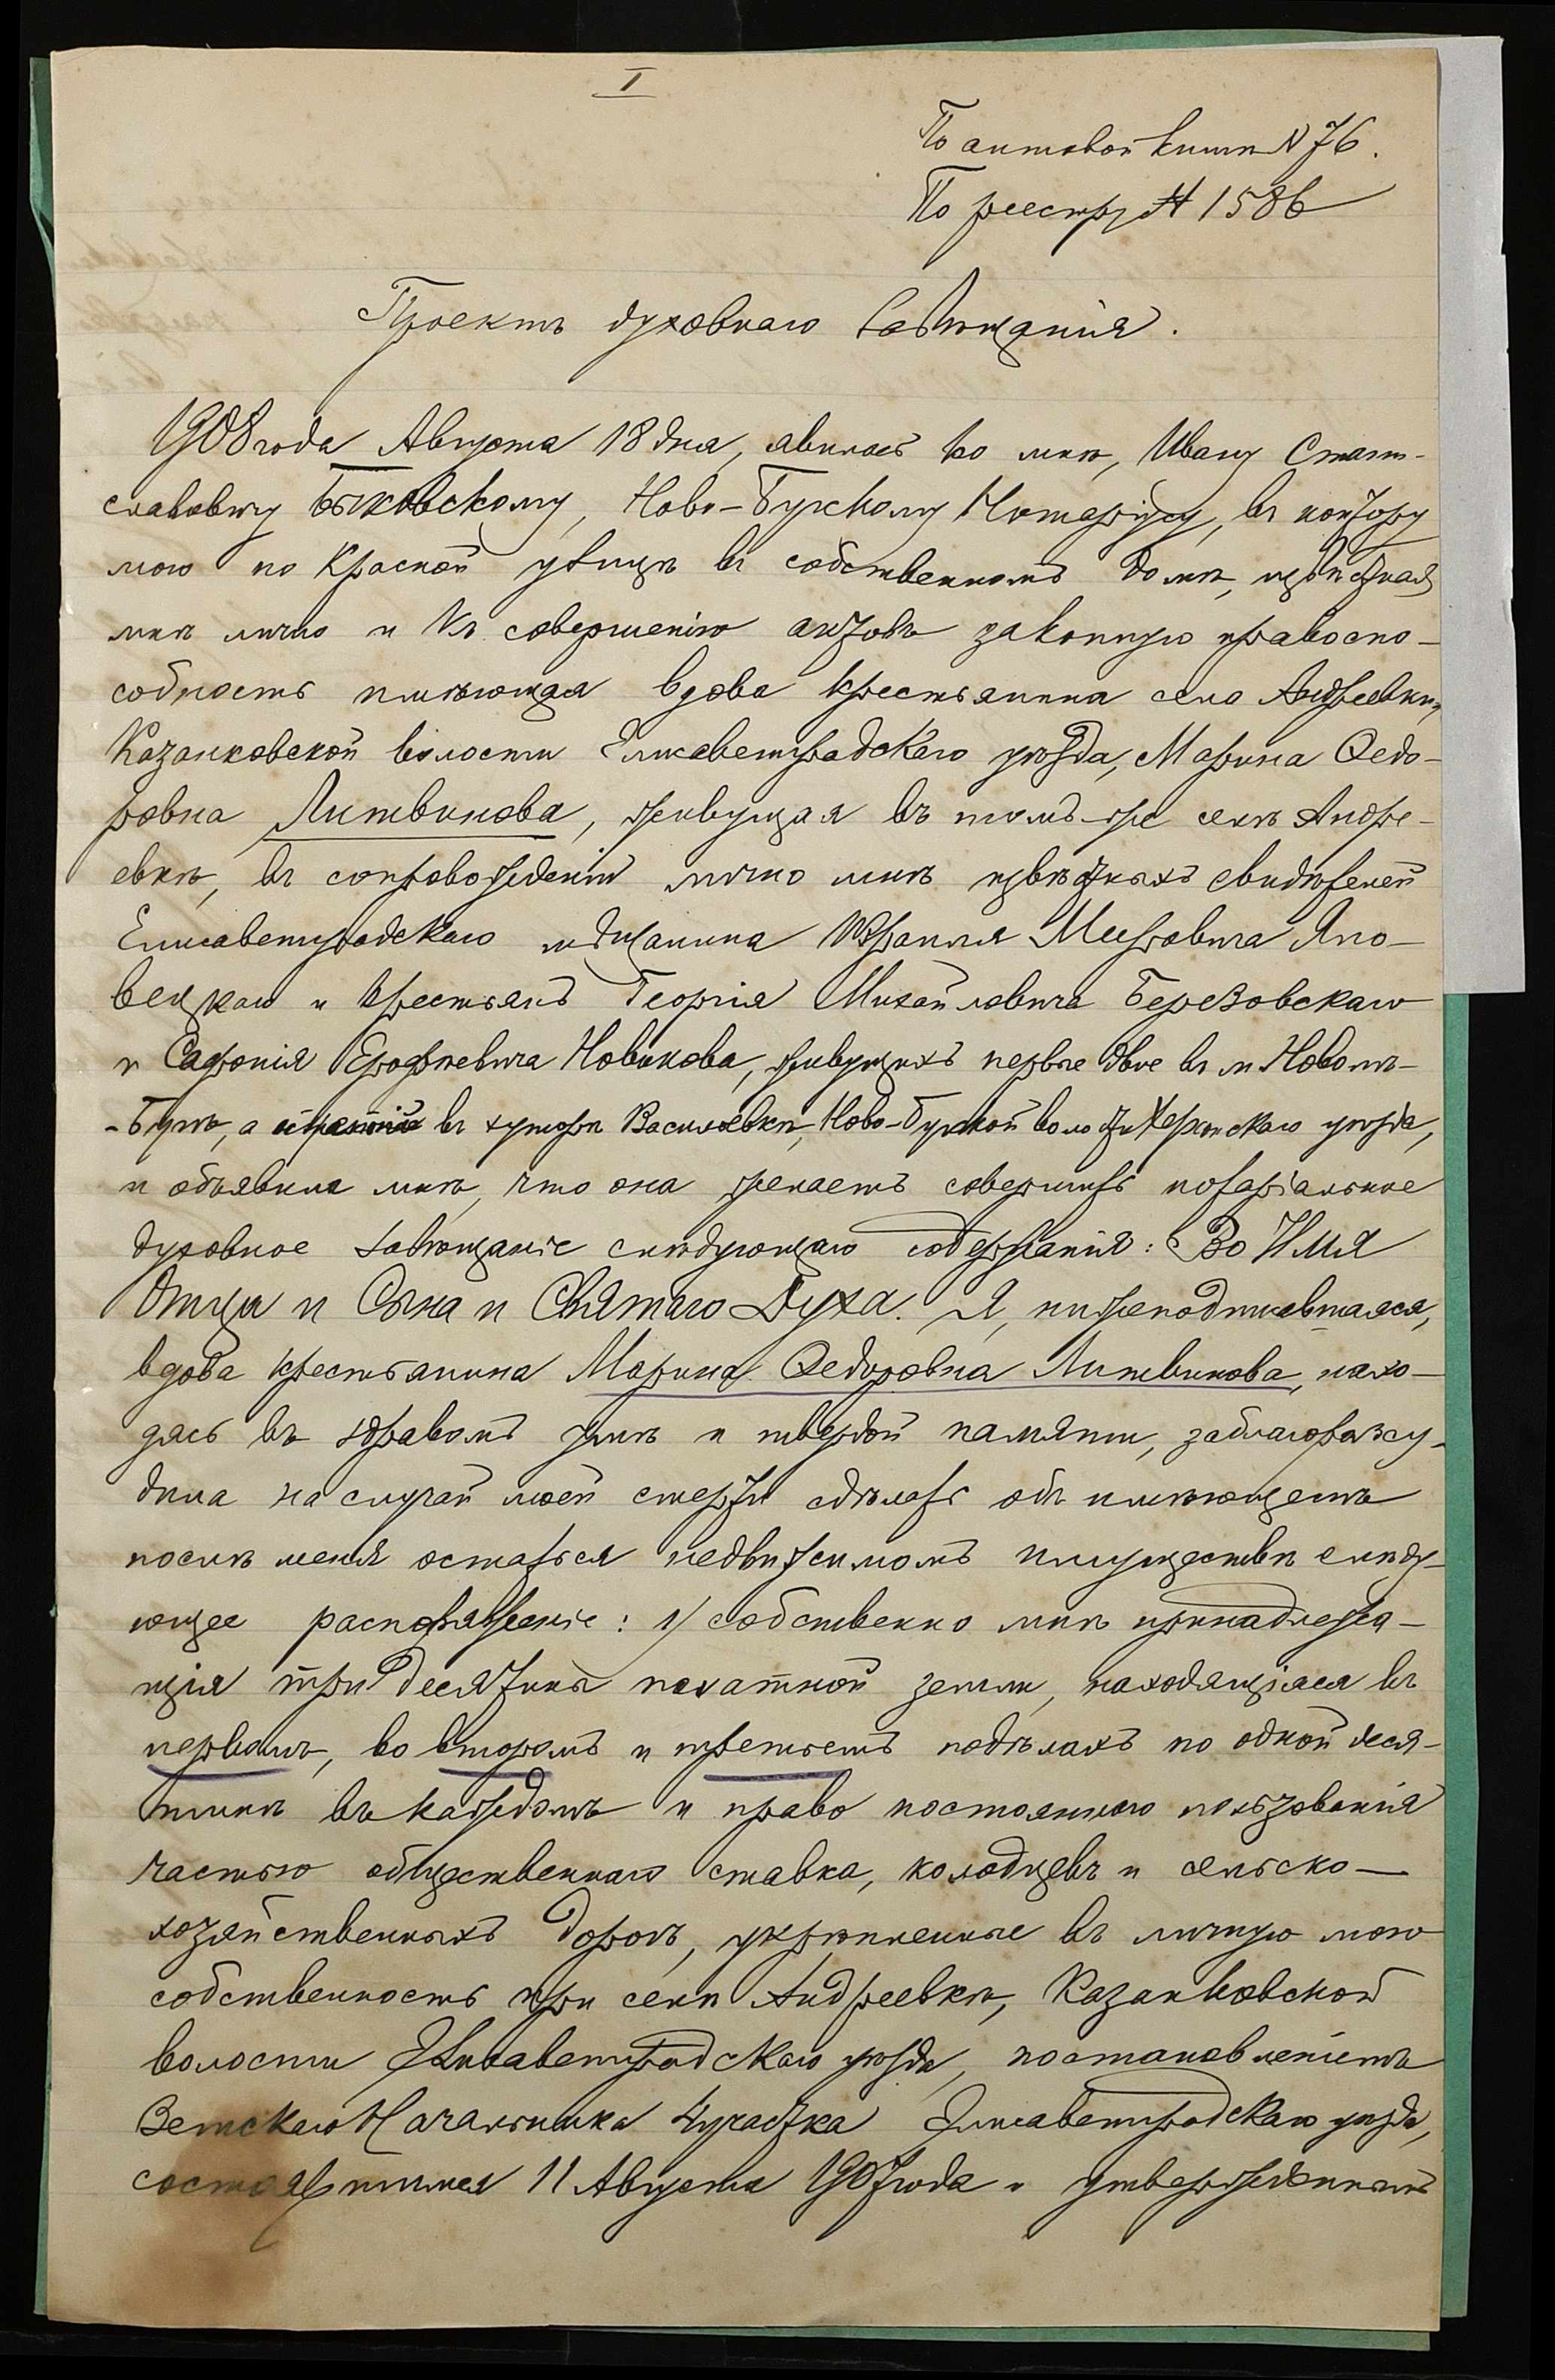 I
По актовой книгѣ № 76.
По реестру № 1586
Проектъ духовнаго завѣщанія.
1908 года Августа 18 дня, явилась ко мнѣ, Ивану Стани-
славовичу Быковскому, Ново-Бугскому Нотаріусу, въ контору
мою по Красной улицѣ въ собственномъ домѣ, извѣстная
мнѣ лично и къ совершенію актовъ законную правоспо-
собность имѣющая вдова крестьянина села Андреевки,
Казанковской волости Елисаветградскаго уѣзда, Марина Ѳедо-
ровна Литвинова, живущая въ томъ-же селѣ Андре-
евкѣ, въ сопровожденіи лично мнѣ извѣстныхъ свидѣтелей
Елисаветградскаго мѣщанина Израиля Мееровича Япо-
вецкаго и крестьянъ Георгія Михайловича Березовскаго
и Сафонія Ерофѣевича Новикова, живущихъ первые двое въ м. Новомъ-
-Бугѣ, а третій въ хуторѣ Васильевкѣ, Ново-Бугской волости Херсонскаго уѣзда,
и объявила мнѣ, что она желаетъ совершить нотаріальное
духовное завѣщаніе слѣдующаго содержанія: Во Имя
Отца и Сына и Святаго Духа. Я, нижеподписавшаяся,
вдова крестьянина Марина Ѳедоровна Литвинова, нахо-
дясь въ здравомъ умѣ и твердой памяти, заблагоразсу-
дила на случай моей смерти сдѣлать объ имѣющемъ
послѣ меня остаться недвижимомъ имуществѣ слѣду-
ющее распоряженіе: 1) собственно мнѣ принадлежа-
щія три десятины пахатной земли, находящіяся въ
первомъ, во второмъ и третьемъ подѣлахъ по одной деся-
тинѣ въ каждомъ и право постояннаго пользованія
частью общественнаго ставка, колодцевъ и сельско-
хозяйственныхъ дорогъ, укрѣпленные въ личную мою
собственность при селѣ Андреевкѣ, Казанковской
волости Елисаветградскаго уѣзда, постановленіемъ
Земскаго Начальника 4 участка Елисаветградскаго уѣзда,
состоявшимся 11 Августа 1907 года и утвержденнымъ